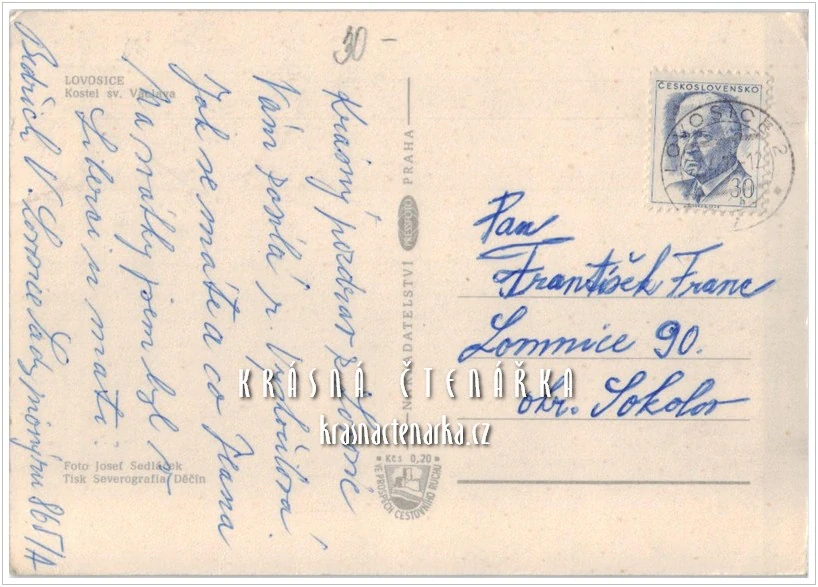 30 -
LOVOSICE
Kostel sv. Václava
Krásný pozdrav z Lovosic
Vám posílá r. Vyhloubová
Jak se máte a co Hana
Na svátky jsem byl v
Liberci u mati.
Bedřich V. Lovosice
865/A
Foto Josef Sedláček
Tisk Severografia Děčín
NAKLADATELSTVÍ PRESSFOTO PRAHA
Kčs 0,20
VE PROSPĚCH CESTOVNÍHO RUCHU
ČESKOSLOVENSKO
30
LOVOSICE 2
Pan
František Franc
Lomnice 90.
okr. Sokolov
KRÁSNÁ ČTENÁŘKA
krasnactenarka.cz